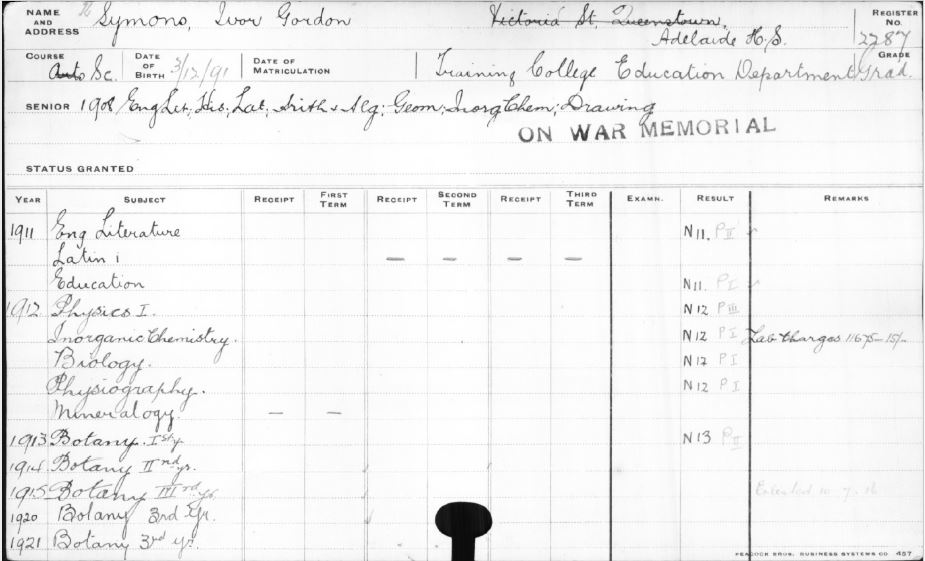 NAME AND ADDRESS Symons, Ivor Gordon Victoria St. Queenstown, Adelaide H.S. REGISTER NO. 2287
COURSE Arts Sc. DATE OF BIRTH 3/12/91 DATE OF MATRICULATION Training College Education Department GRADE Grad.
SENIOR 1908 Eng Lit; His; Lat; Arith & Alg; Geom; Inorg Chem; Drawing
ON WAR MEMORIAL
STATUS GRANTED
YEAR SUBJECT RECEIPT FIRST TERM RECEIPT SECOND TERM RECEIPT THIRD TERM EXAMN. RESULT REMARKS
1911 Eng Literature N11. PII
Latin i — — — —
Education N11. PI
1912 Physics I. N12 PIII
Inorganic Chemistry. N12 PI Lab Charges 11675 - 15/-
Biology. N12 PI
Physiography. N12 PI
Mineralogy. — —
1913 Botany. Ist yr N13 PII
1914 Botany IInd yr.
1915 Botany IIIrd yr
1920 Botany 3rd Yr.
1921 Botany 3rd yr.
PEACOCK BROS. BUSINESS SYSTEMS CO 457